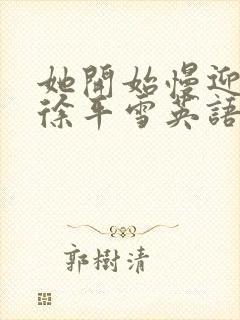 她開始慢迎
徐平雪英語
郭樹清